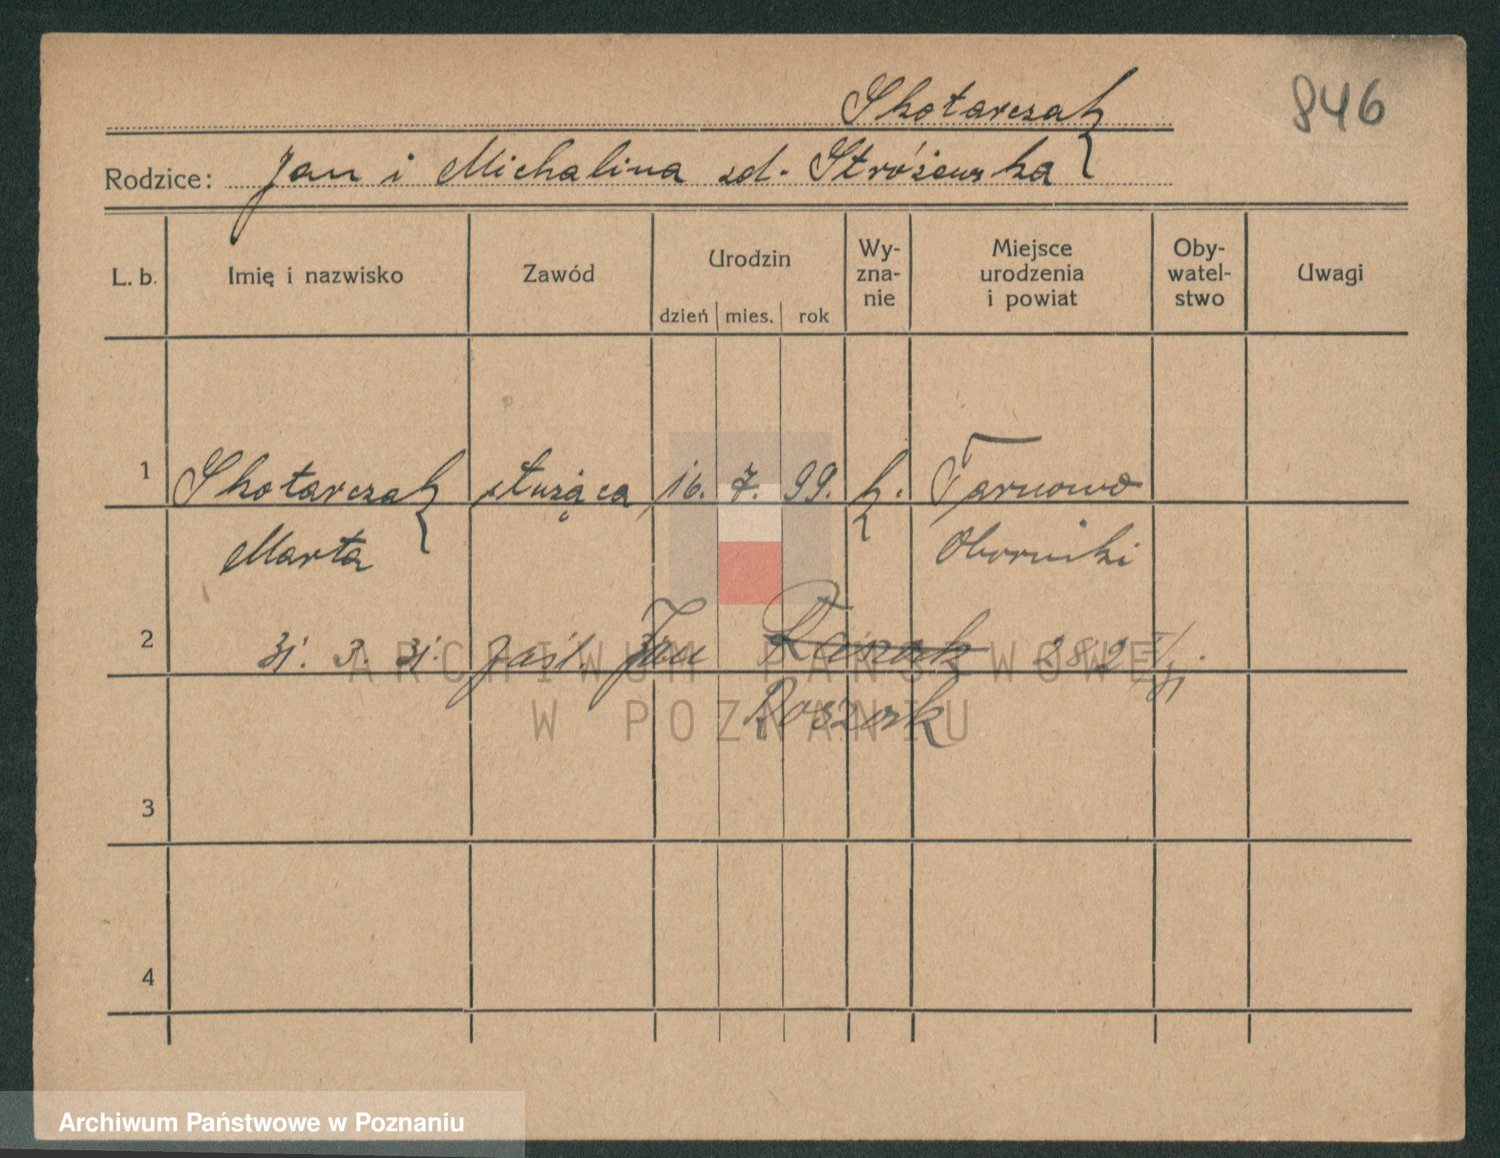 Skotarczak
846
Rodzice: Jan i Michalina zd. Stróżewska
L. b.
Imię i nazwisko
Zawód
Urodzin
dzień mies. rok
Wy-
zna-
nie
Miejsce
urodzenia
i powiat
Oby-
watel-
stwo
Uwagi
1 Skotarczak służąca 16. 7. 99. k. Tarnowo
Marta Oborniki
2 31. 3. 31. Jan 282
ARCHIWUM PAŃSTWOWE
W POZNANIU
3
4
Archiwum Państwowe w Poznaniu